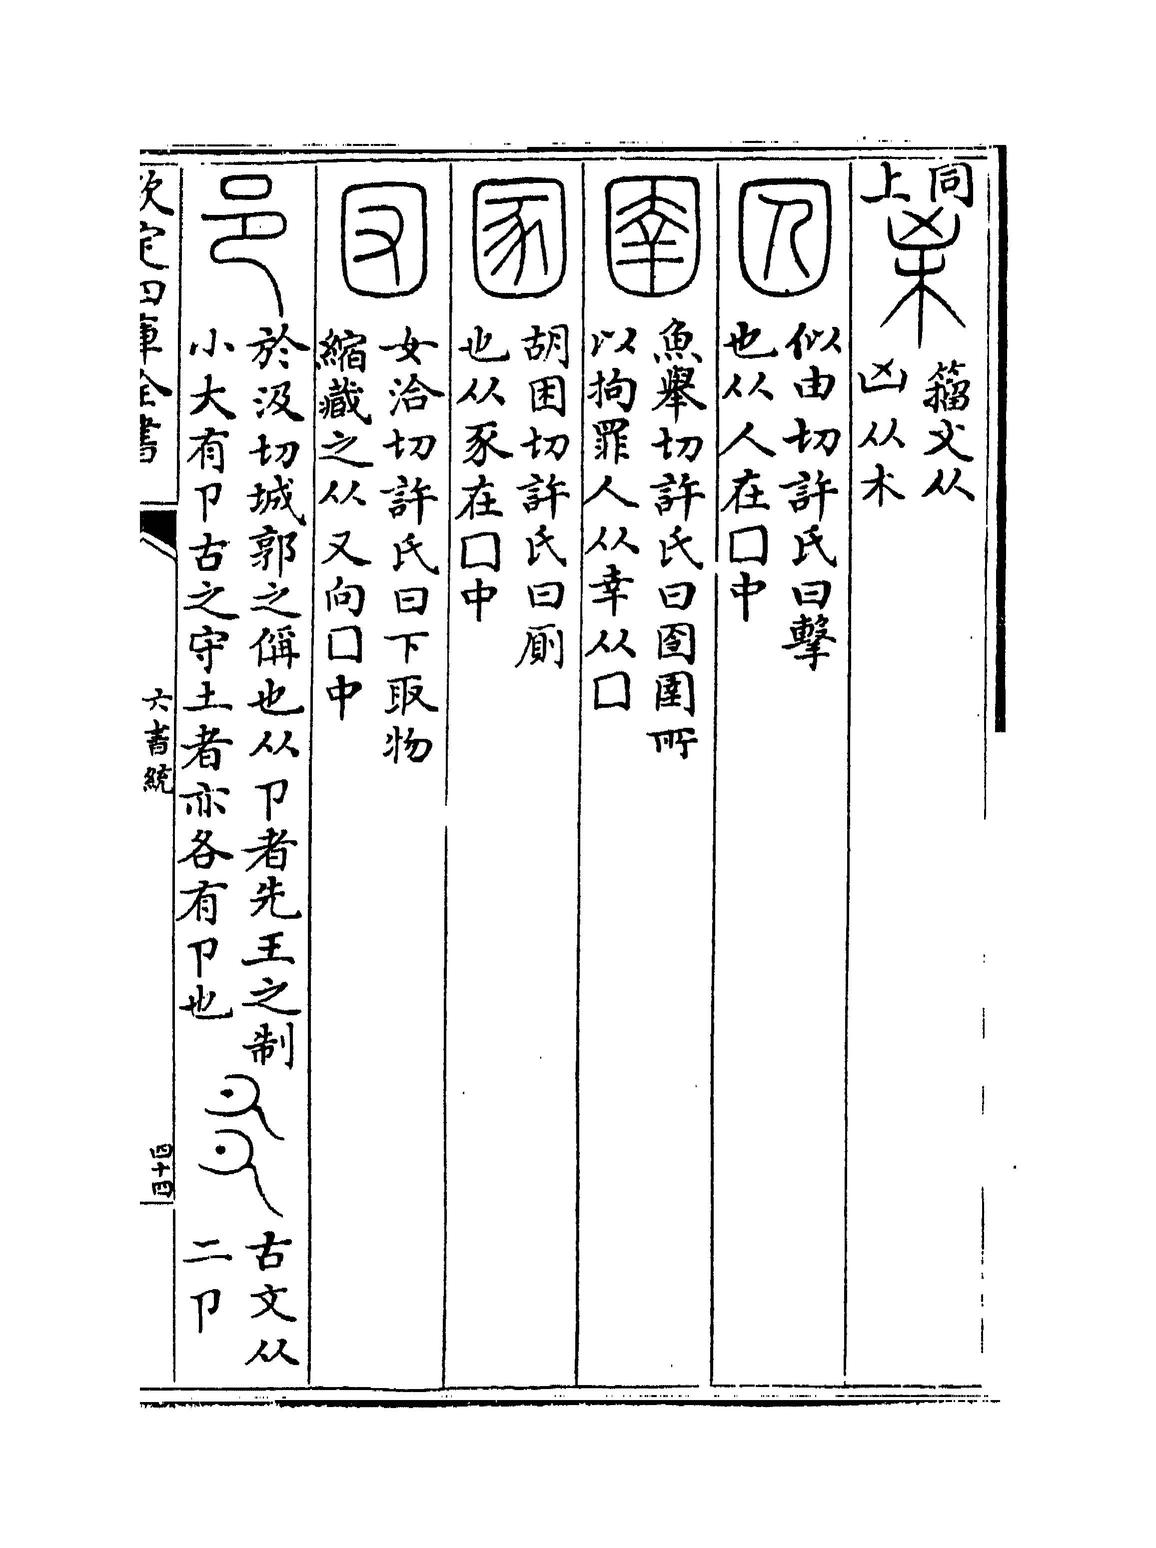 同
上
籀文从
凶从木
囚
似由切許氏曰擊
也从人在囗中
圉
魚舉切許氏曰囹圉所
以拘罪人从幸从囗
圂
胡困切許氏曰廁
也从豕在囗中
㕚
女洽切許氏曰下取物
縮藏之从又向囗中
邑
於汲切城郭之偁也从卩者先王之制
小大有卩古之守土者亦各有卩也
古文从
二卩
欽定四庫全書
六書統
四十四